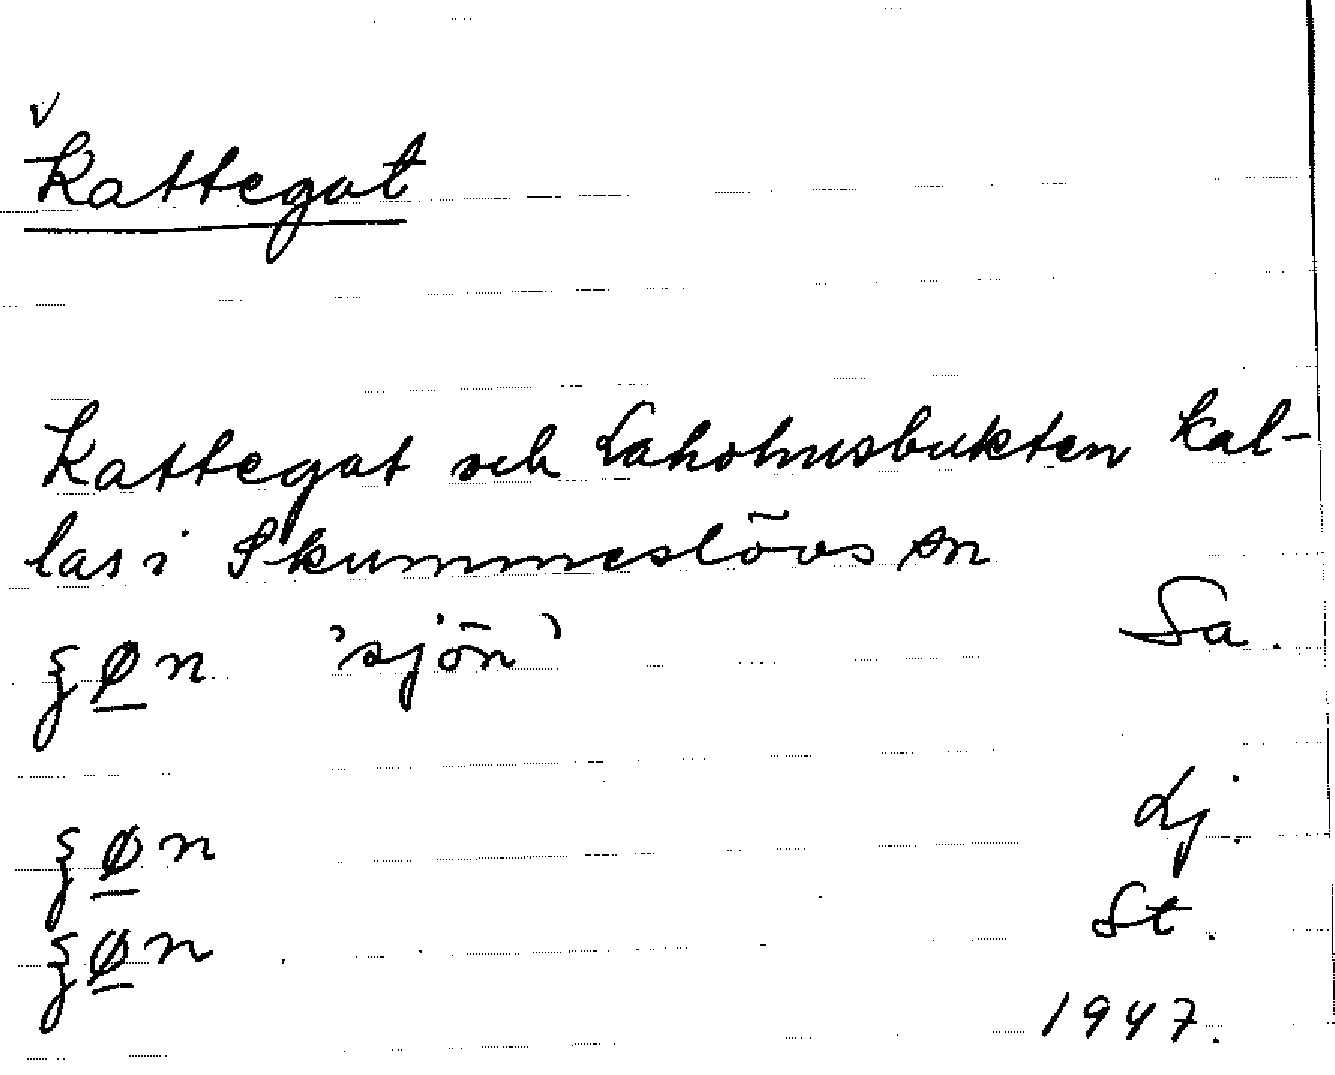 v
Kattegat
Kattegat och Laholmsbukten kal-
las i Skummeslövs sn
ʂø̲n 'sjön' Sa.
ʂø̲n Lj.
ʂø̲n St.
1947.